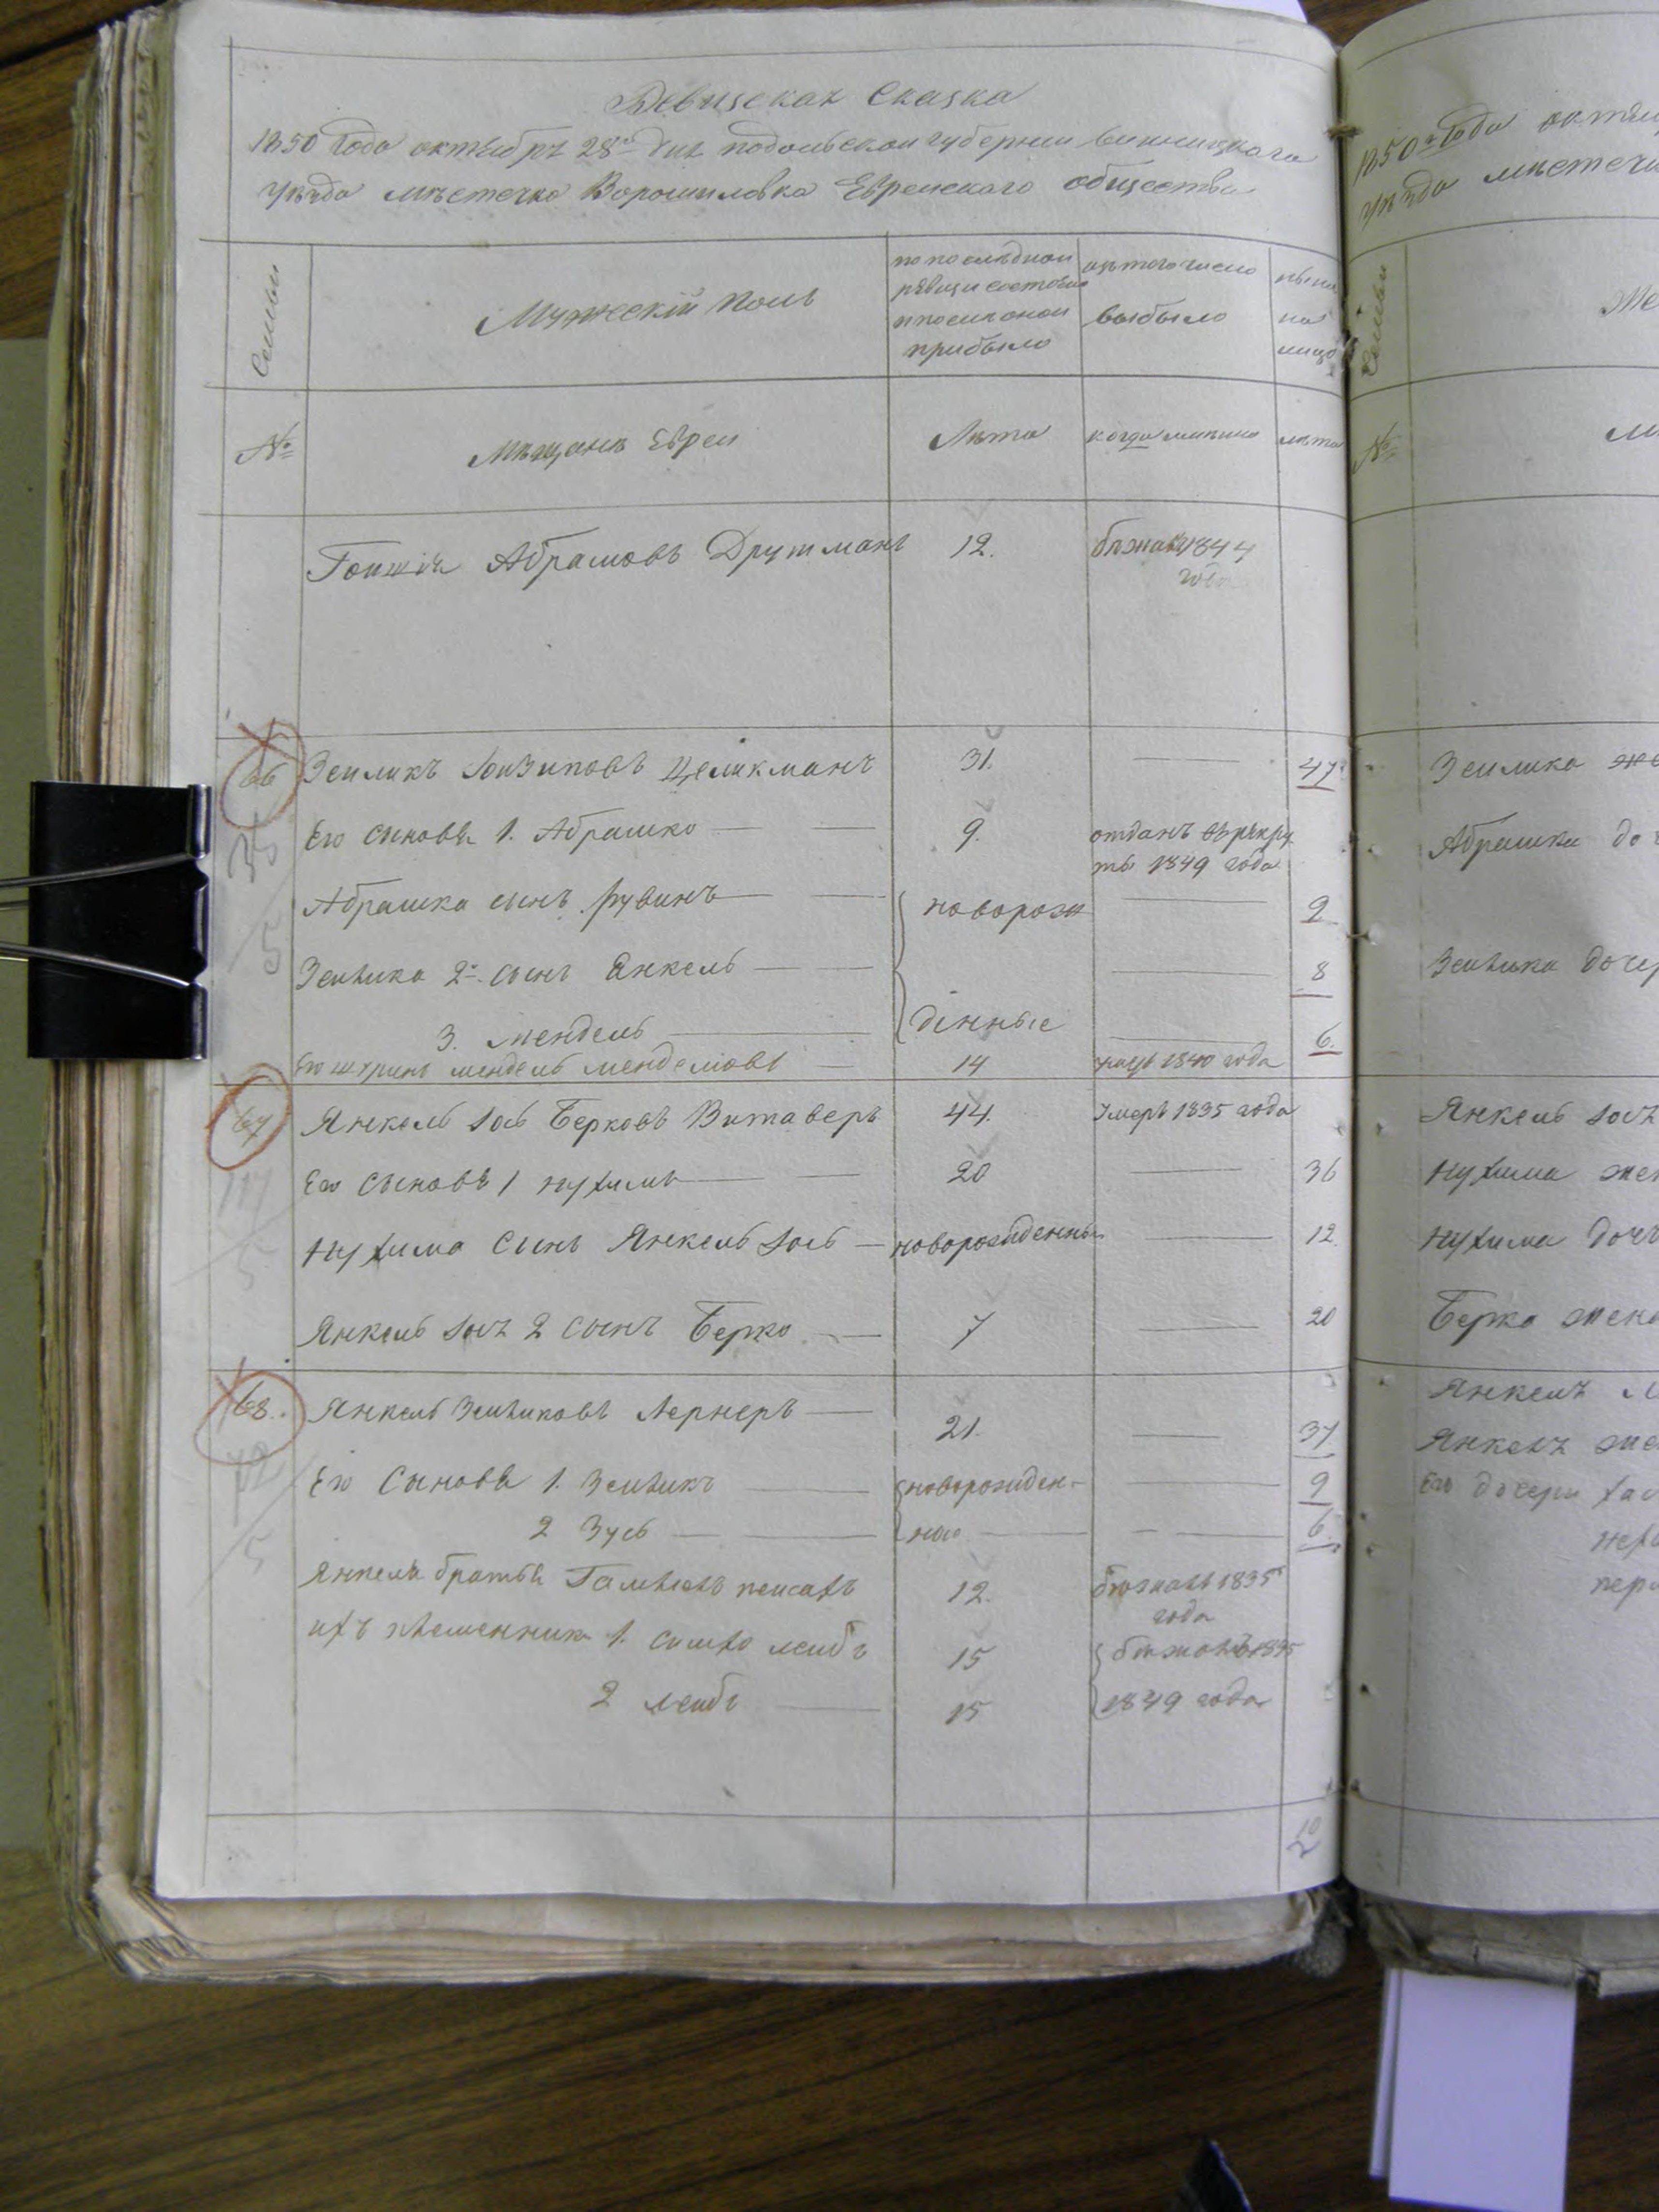 Ревизская Сказка
1850 Года октября 28го дня подольской губернии винницкаго
уезда мѣстечка Ворошиловка Еврейскаго общества
Семьи
Мужескiй Полъ
по последней ревизи состояло и после оной прибыло
изъ того число выбыло
ныне на лицо
№
Мѣщане Евреи
Лѣта
когда имянно
лѣта
Абрамовъ Друтманъ 12. бѣжалъ 1844 года
66 Зейликъ Целикманъ 31. 47
Его сыновья 1. Абрашко 9. отданъ въ рекруты 1849 года
35
Абрашка сынъ Рувинъ новорож 9
5
Зейлика 2й сынъ Янкель 8
3. Мендель дѣнные 6.
Его мендель менделiовъ 14 1840 года
67 Янкель Iось Берковъ Витаверъ 44. Умеръ 1835 года
Его сыновья 1 нухимъ 20 36
Нухима Сынъ Янкель Iось новорожденный 12
5
Янкель Iосъ 2 сынъ Берко 7 20
68. Янкель Зейликовъ Лернеръ 21. 37
Его Сыновья 1. Зейликъ новорожден- 9
2 Зусь ные 6.
5
Янкеля братья пейсахъ 12. бѣжалъ 1835 года
ихъ племенники 1. лейбъ 15 бѣжалъ 1835
2 лейбъ 15 1849 года
10
1850 Года
уезда мѣстечк
Семьи
Же
№
Зейлика же
Абрашки доч
Зейлика дочер
Янкель Iосъ
Нухима жен
Нухима дочь
Берка жена
Янкелъ
Янкелъ же
Его дочери